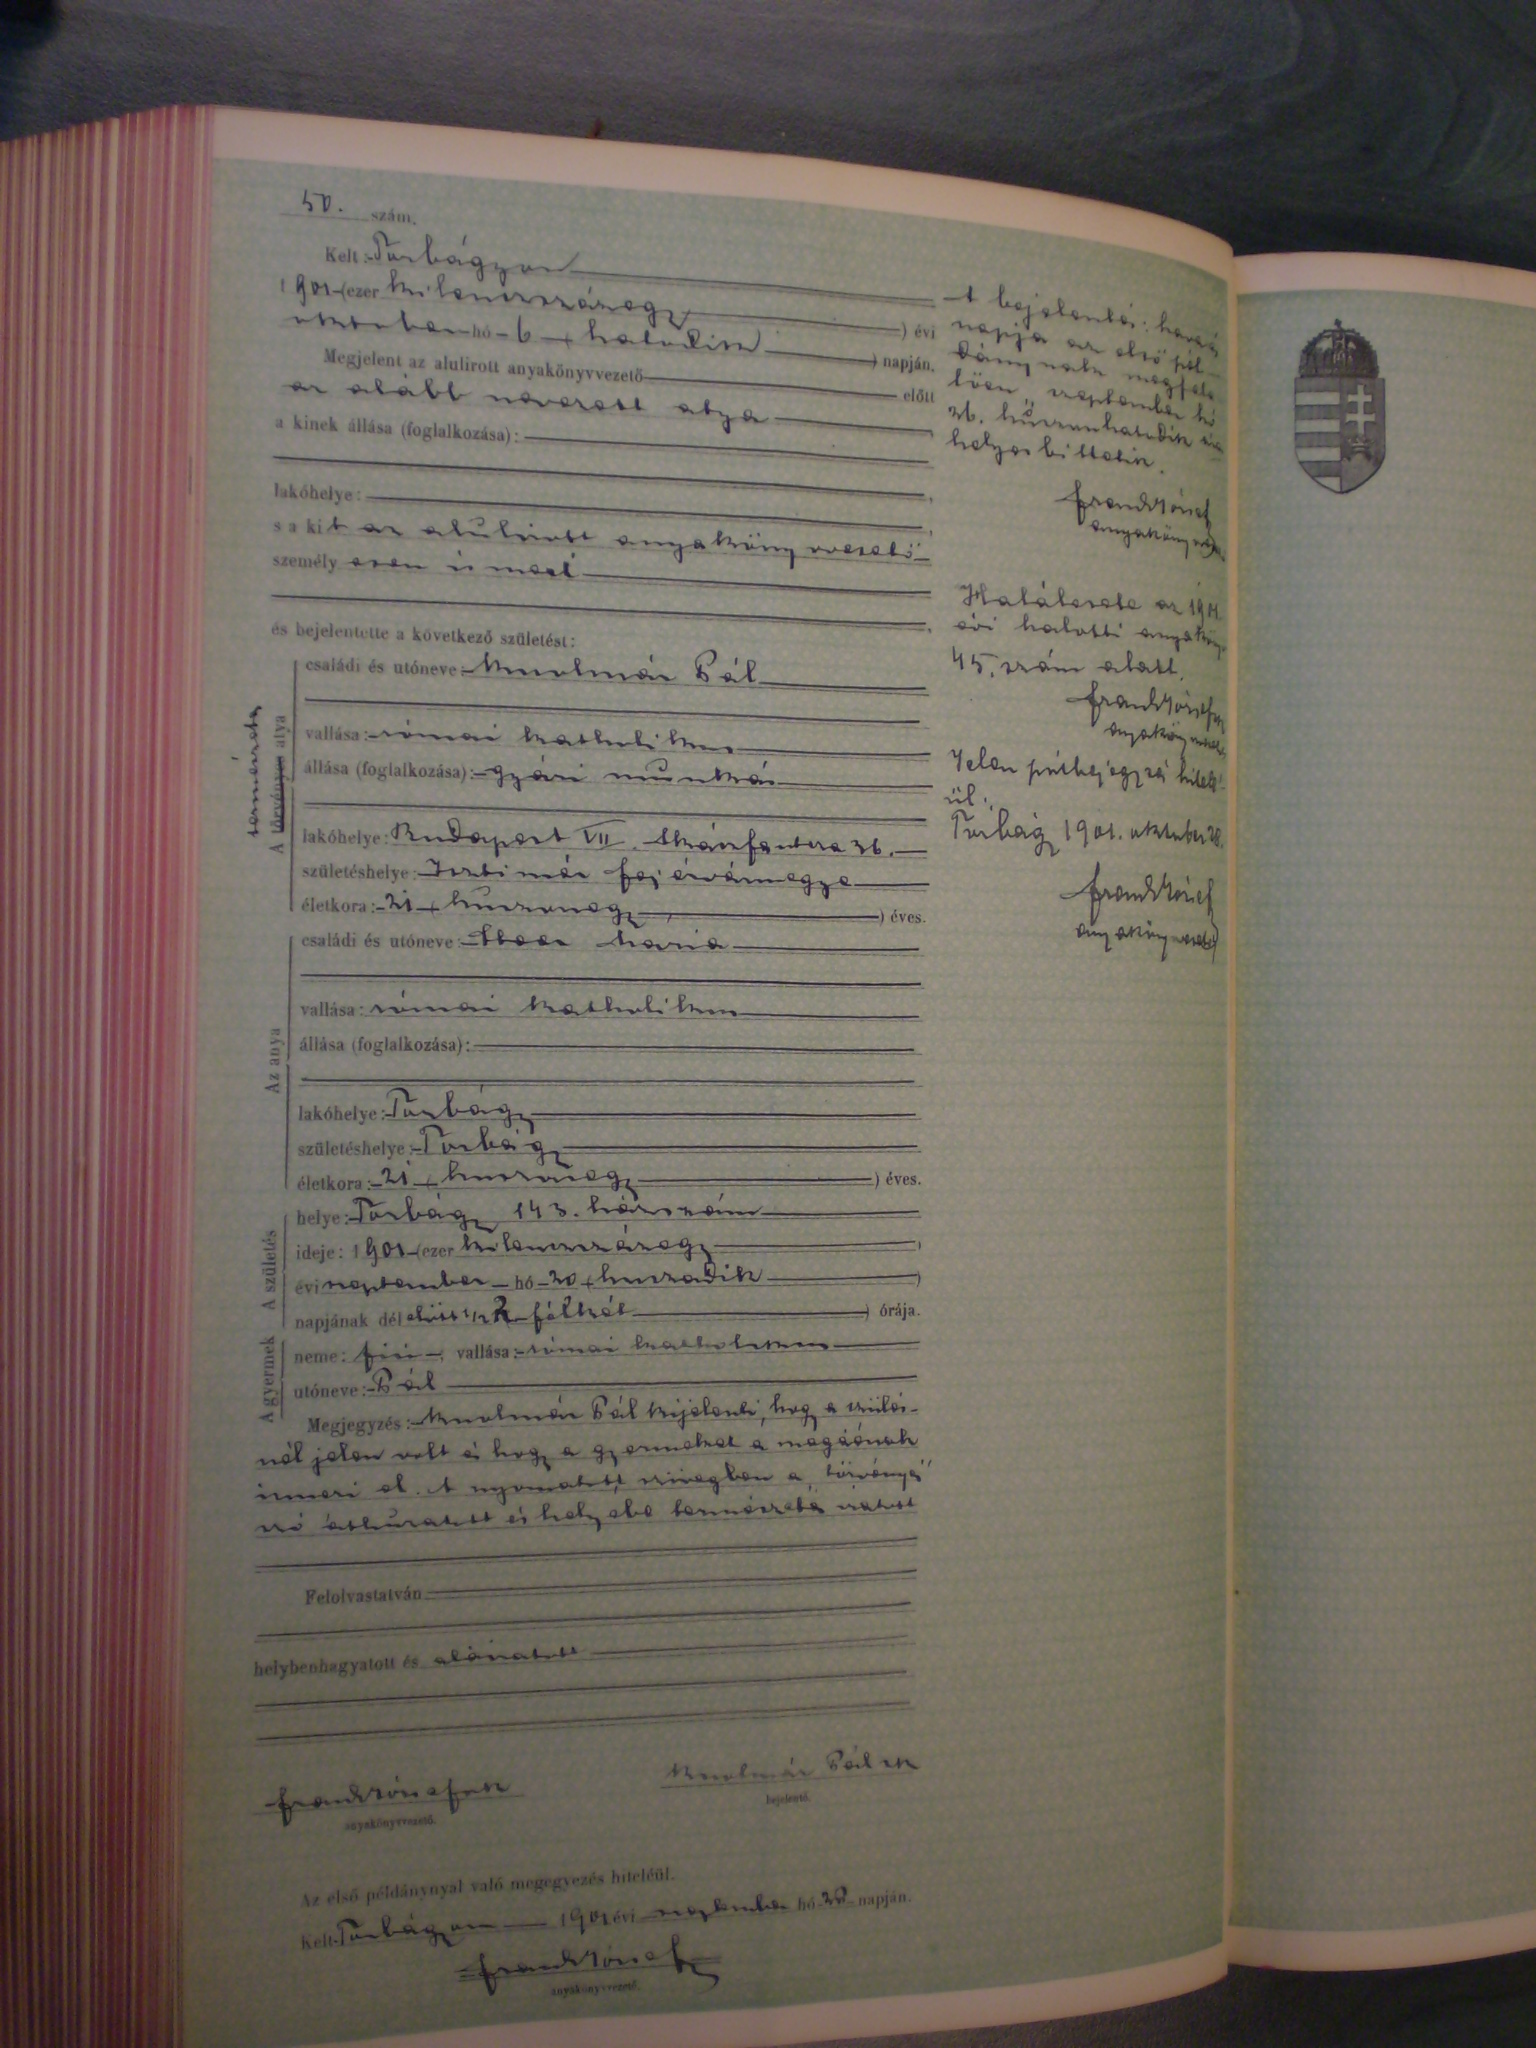 50. szám.
Kelt: Torbágyon
1901 (ezer kilenczszázegy) évi
oktober hó 6 (hatodik) napján.
Megjelent az alulirott anyakönyvvezető előtt
az alább nevezett atya
a kinek állása (foglalkozása):
lakóhelye:
s a kit az alulirott anyakönyvvezető
személyesen ismeri
és bejelentette a következő születést:
A természetes törvényes atya
családi és utóneve: Knolmár Pál
vallása: római katholikus
állása (foglalkozása): gyári munkás
lakóhelye: Budapest VII. 26.
születéshelye: Isztimér fejérvármegye
életkora: 21 (huszonegy) éves.
Az anya
családi és utóneve: Maria
vallása: római katholikus
állása (foglalkozása):
lakóhelye: Torbágy
születéshelye: Torbágy
életkora: 21 (huszonegy) éves.
A születés
helye: Torbágy 143. házszám
ideje: 1901 (ezer kilenczszázegy
évi szeptember hó 20 (huszadik)
napjának délelőtt 1/2 2 féllkét) órája.
A gyermek
neme: fiú, vallása: római katholikus
utóneve: Pál
Megjegyzés: Knolmár Pál kijelenti, hogy a szülés-
nél jelen volt és hogy a gyermeket a magáénak
ismeri el. A nyomatott szövegben a „törvényes"
szó áthúzatott és helyebe természetes iratott
Felolvastatván
helybenhagyatott és aláiratott
Frank József sk
anyakönyvvezető.
Knolmár Pál sk
bejelentő.
Az első példánynyal való megegyezés hiteléül.
Kelt Torbágyon 1901 évi szeptember hó napján.
Frank József
anyakönyvvezető.
A bejelentés: hava és
napja az első pél-
dánynak megfele-
lően „szeptember hó
26. huszonhatodik"
helyesbittetik.
Frank József
anyakönyvvezető
Halálesete az 1901.
évi halotti anyakönyv
45. szám alatt.
Frank József
anyakönyvvezető
Jelen pótbejegyzés hitele-
ül.
Torbágy 1901. oktober 28.
Frank József
anyakönyvvezető